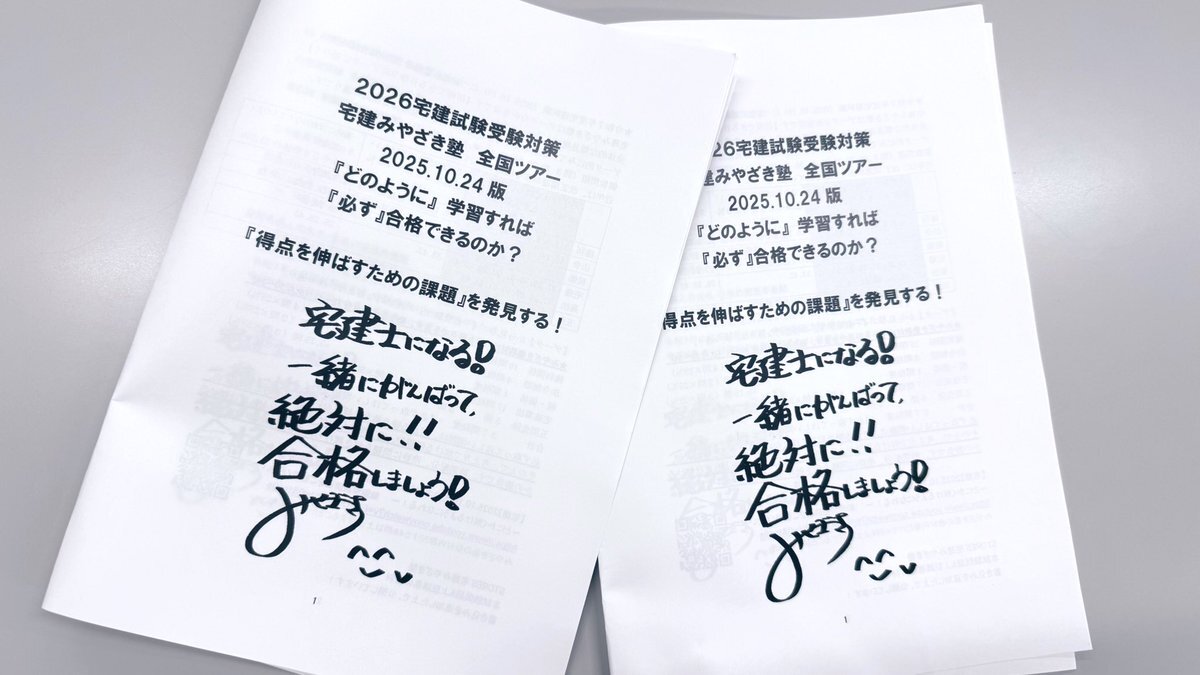 2026宅建試験受験対策
宅建みやざき塾 全国ツアー
2025.10.24版
『どのように』学習すれば
『必ず』合格できるのか？
『得点を伸ばすための課題』を発見する！
宅建士になる!
一緒にがんばって、
絶対に!!
合格しましょう!
みやざき
1
26宅建試験受験対策
建みやざき塾 全国ツアー
2025.10.24版
『どのように』学習すれば
『必ず』合格できるのか？
得点を伸ばすための課題』を発見する！
宅建士になる!
一緒にがんばって、
絶対に!!
合格しましょう!
みやざき
1